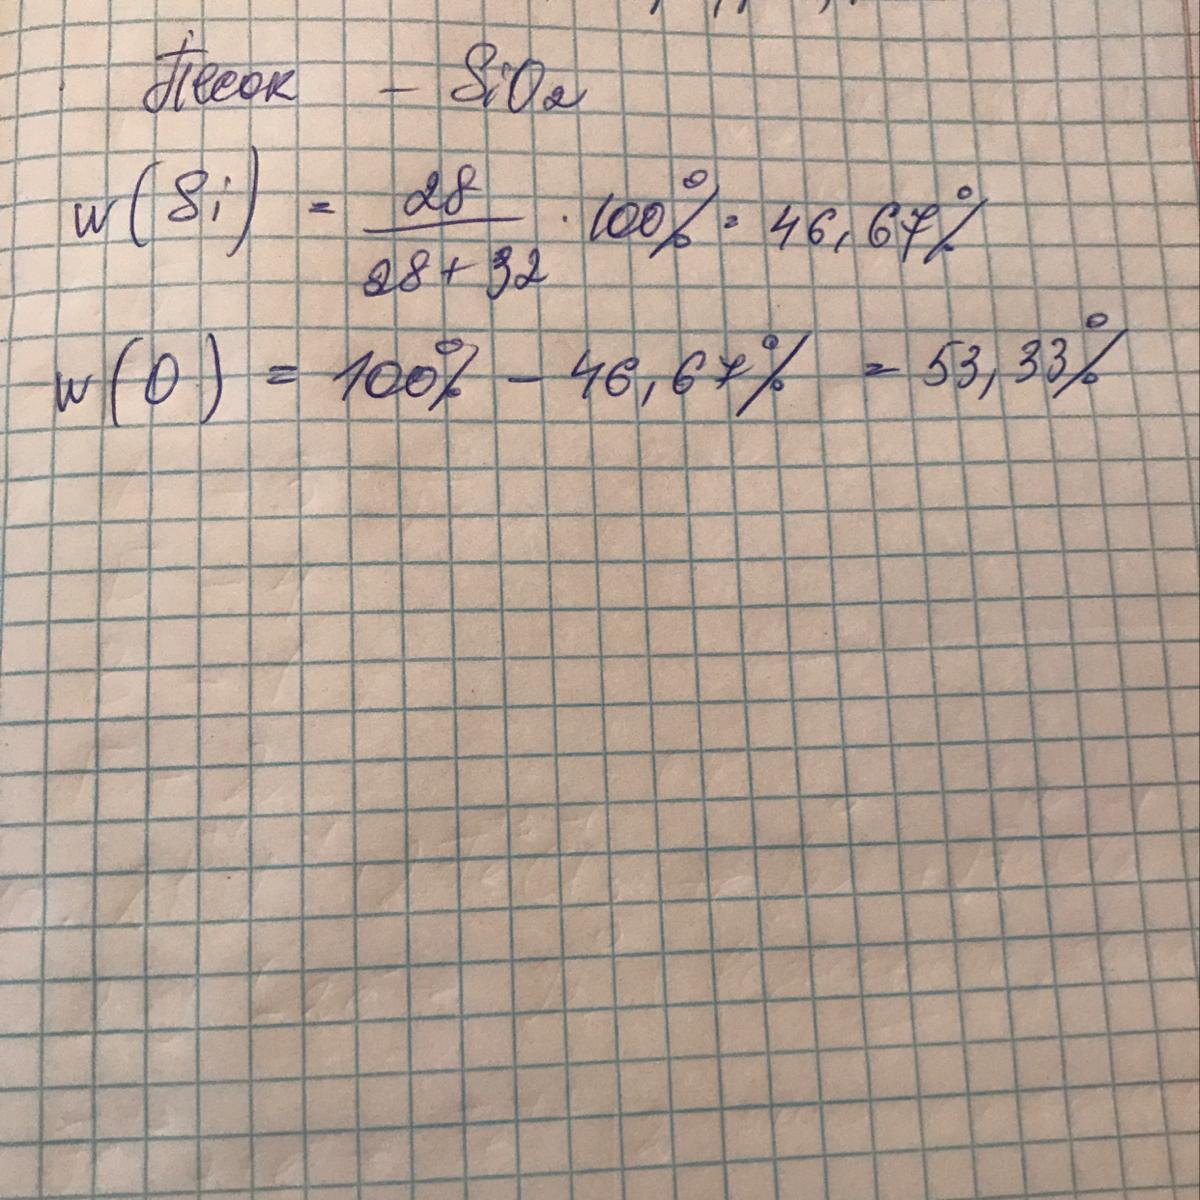 Песок - SiO2
w(Si) = 28/28+32 · 100% = 46,67%
w(O) = 100% - 46,67% = 53,33%